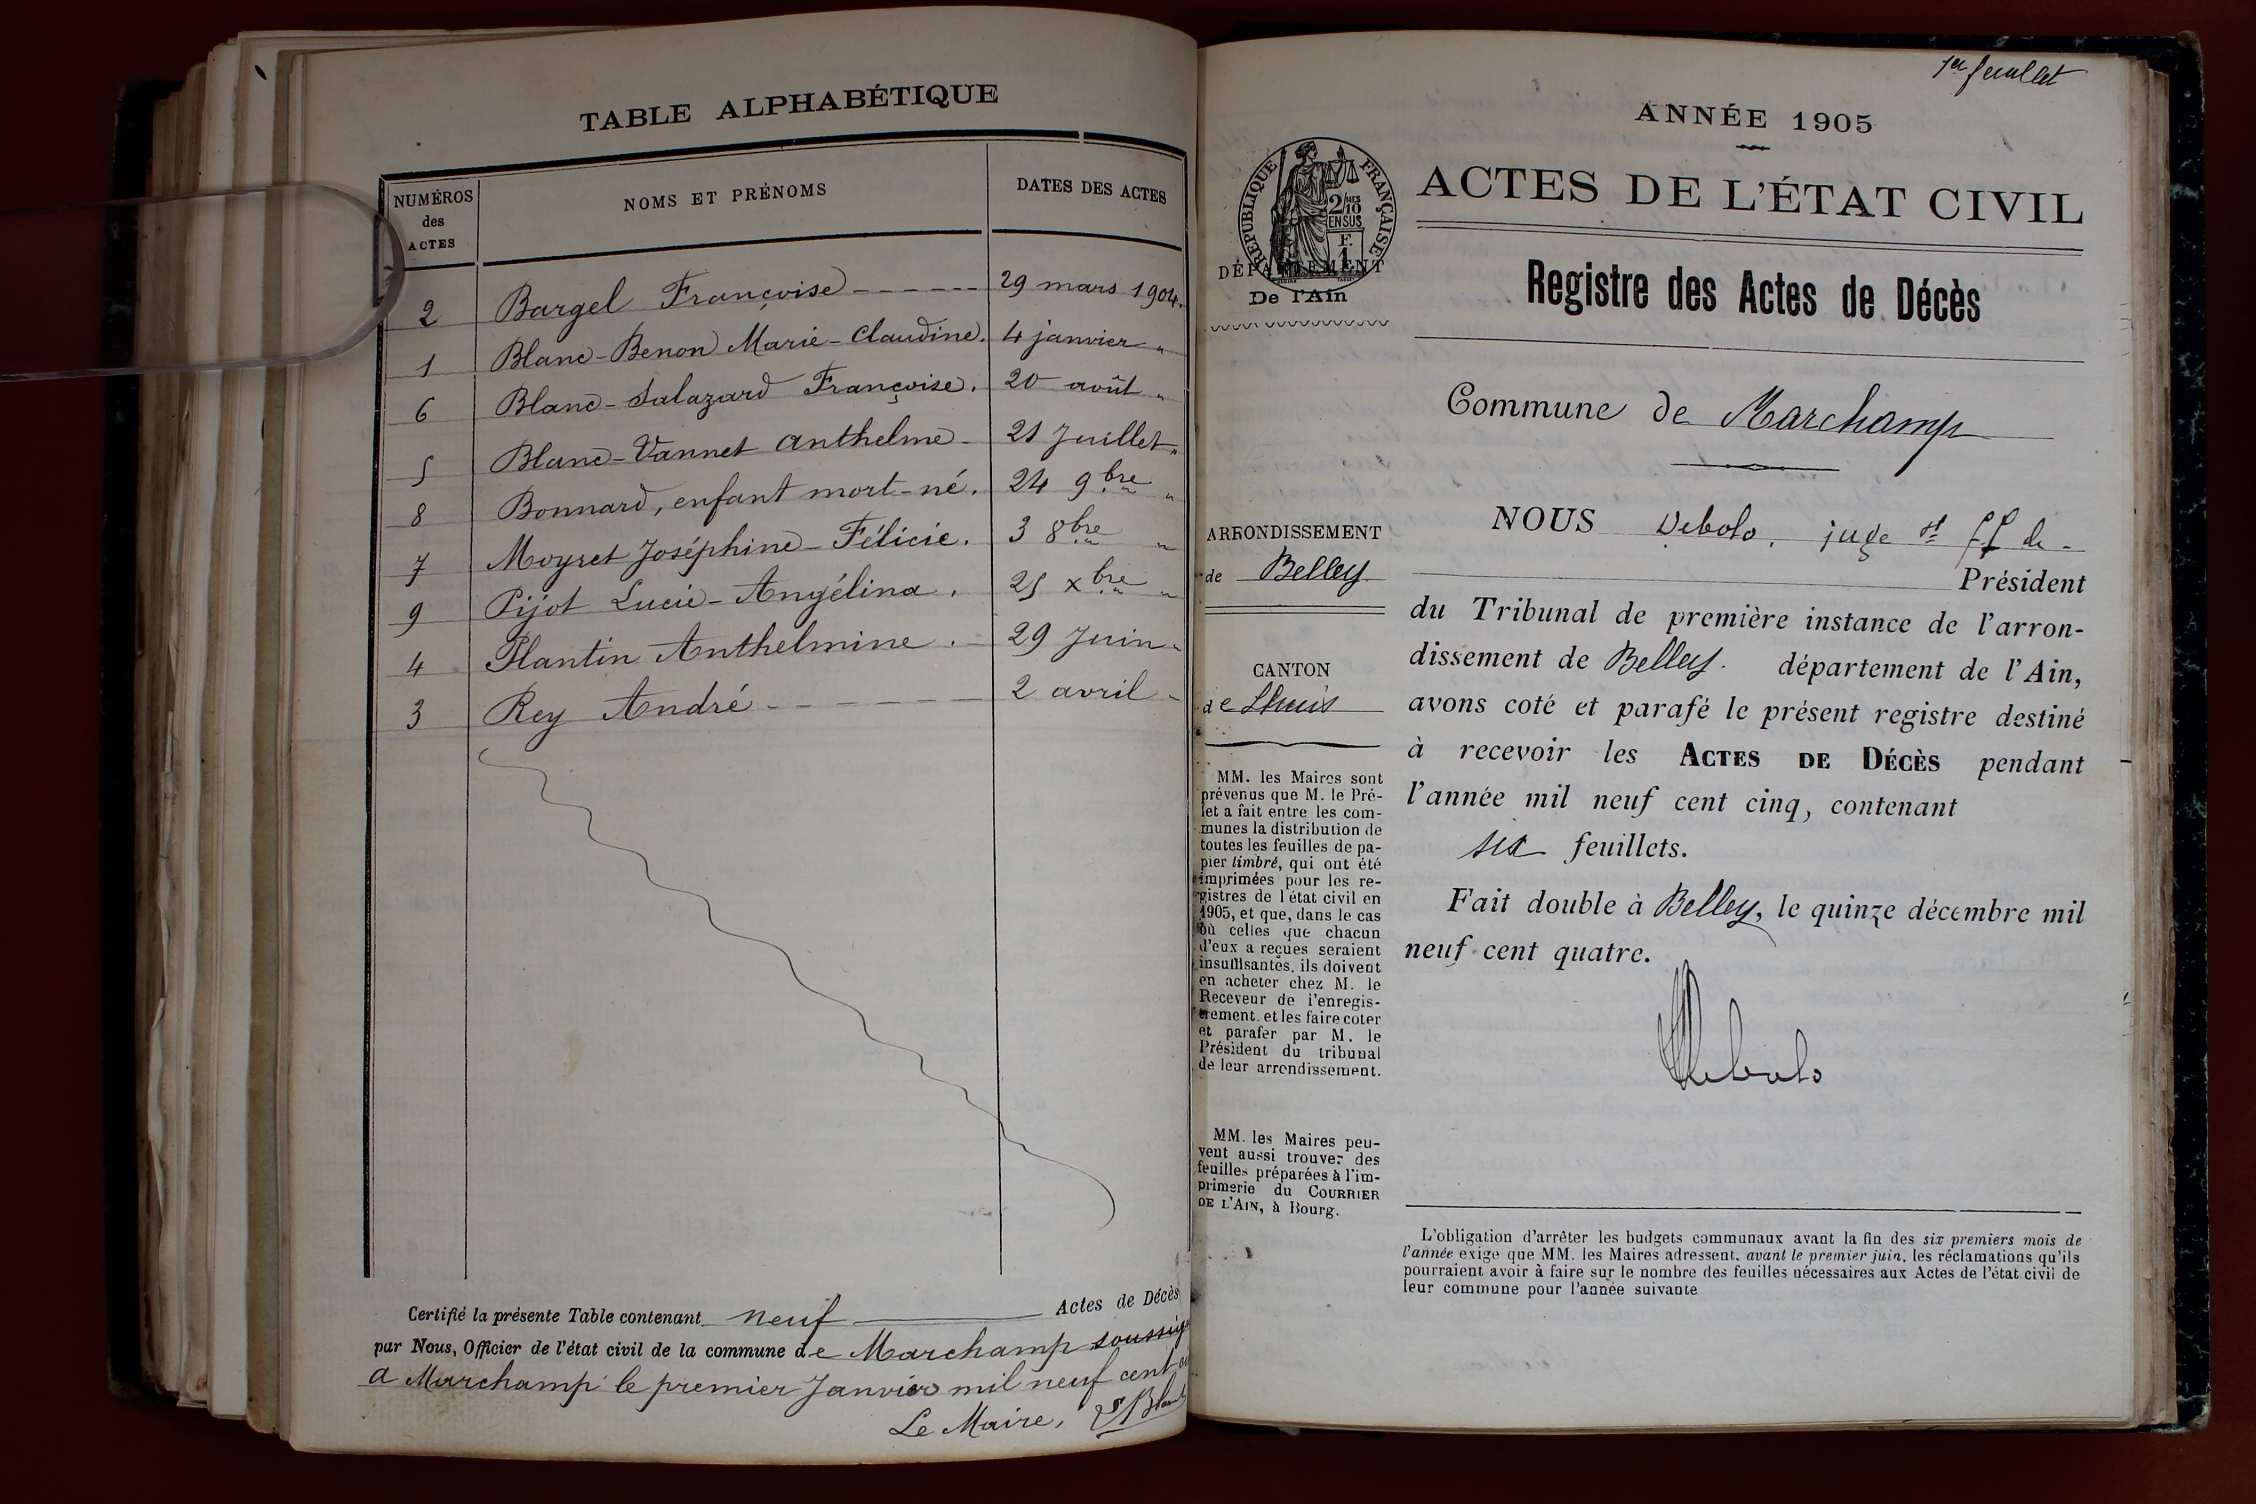 TABLE ALPHABÉTIQUE
NUMÉROS des ACTES
NOMS ET PRÉNOMS
DATES DES ACTES
2 Bargel Françoise 29 mars 1904.
1 Blanc-Benon Marie-Claudine. 4 janvier "
6 Blanc-Salazard Françoise. 20 août "
5 Blanc-Vannet Anthelme 21 Juillet "
8 Bonnard, enfant mort-né. 24 9bre "
7 Moyret Joséphine-Félicie. 3 8bre "
9 Pijot Lucie-Angélina. 25 xbre "
4 Plantin Anthelmine. 29 Juin "
3 Rey André 2 avril "
Certifié la présente Table contenant neuf Actes de Décès
par Nous, Officier de l'état civil de la commune de Marchamp
a Marchamp le premier Janvier mil neuf cent
Le Maire,
1er feuillet
ANNÉE 1905
ACTES DE L'ÉTAT CIVIL
RÉPUBLIQUE FRANÇAISE
2/10 EN SUS
F. 1
DÉPARTEMENT
De l'Ain
Registre des Actes de Décès
Commune de Marchamp
ARRONDISSEMENT
de Belley
CANTON
de Lhuis
MM. les Maires sont
prévenus que M. le Pré-
fet a fait entre les com-
munes la distribution de
toutes les feuilles de pa-
pier timbré, qui ont été
imprimées pour les re-
gistres de l'état civil en
1905, et que, dans le cas
où celles que chacun
d'eux a reçues seraient
insuffisantes, ils doivent
en acheter chez M. le
Receveur de l'enregis-
trement, et les faire coter
et parafer par M. le
Président du tribunal
de leur arrondissement.
MM. les Maires peu-
vent aussi trouver des
feuilles préparées à l'im-
primerie du COURRIER
DE L'AIN, à Bourg.
NOUS Debolo, juge st ff de
Président
du Tribunal de première instance de l'arron-
dissement de Belley. département de l'Ain,
avons coté et parafé le présent registre destiné
à recevoir les ACTES DE DÉCÈS pendant
l'année mil neuf cent cinq, contenant
six feuillets.
Fait double à Belley, le quinze décembre mil
neuf cent quatre.
Debolo
L'obligation d'arrêter les budgets communaux avant la fin des six premiers mois de
l'année exige que MM. les Maires adressent, avant le premier juin, les réclamations qu'ils
pourraient avoir à faire sur le nombre des feuilles nécessaires aux Actes de l'état civil de
leur commune pour l'année suivante